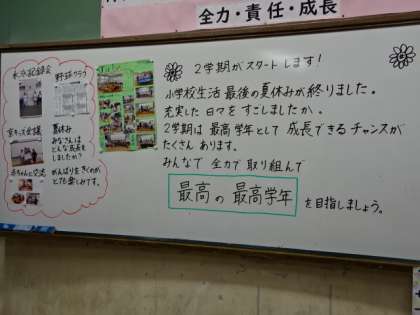 全力・責任・成長
2学期がスタートします！
小学校生活 最後の夏休みが終りました。
充実した日々をすごしましたか。
2学期は最高学年として成長できるチャンスが
たくさんあります。
みんなで全力で取り組んで
最高の最高学年を目指しましょう。
水泳記録会
野球クラブ
夏休み
みなさんは
どんな成長を
しましたか？
がんばりをきくのが
とても楽しみです。
赤ちゃんと交流